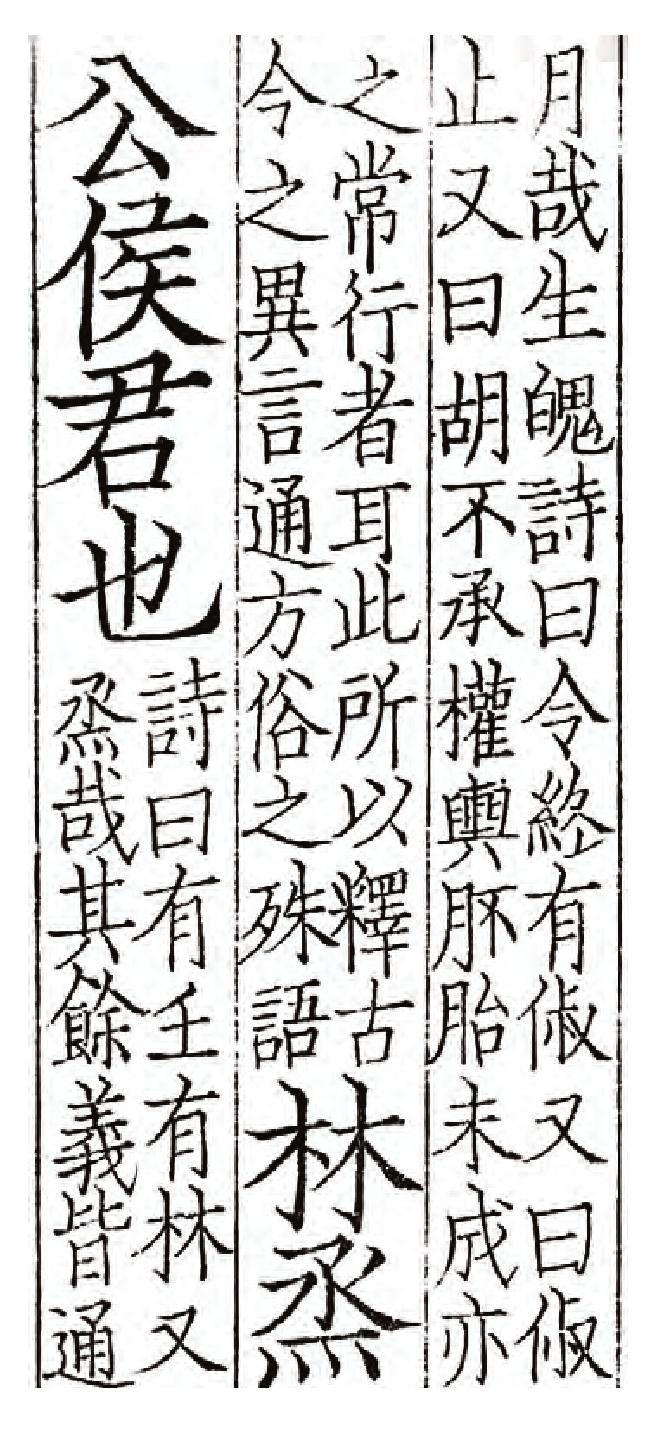 月哉生魄詩曰令終有俶又曰俶
止又曰胡不承權輿肧胎未成亦
之常行者耳此所以釋古
今之異言通方俗之殊語
林烝
公侯君也
詩曰有壬有林又
烝哉其餘義皆通